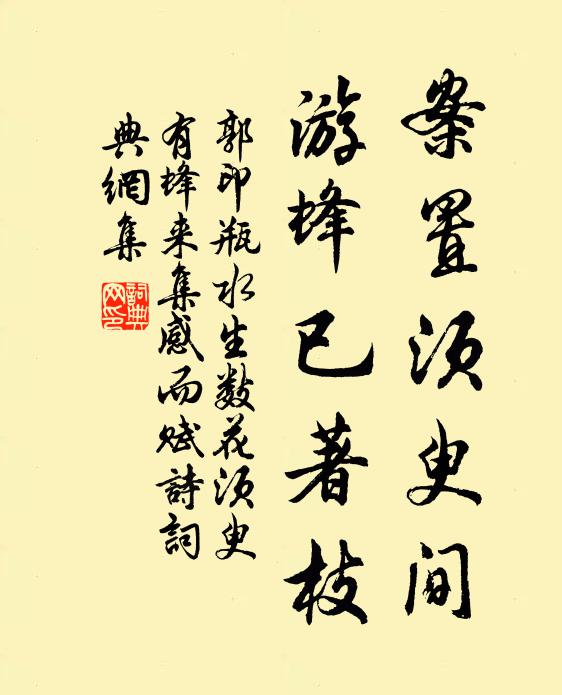 案置须臾间
游蜂已著枝
郭印瓶水生数花须臾
有蜂来集感而赋詩詞
典網集
詞典网印